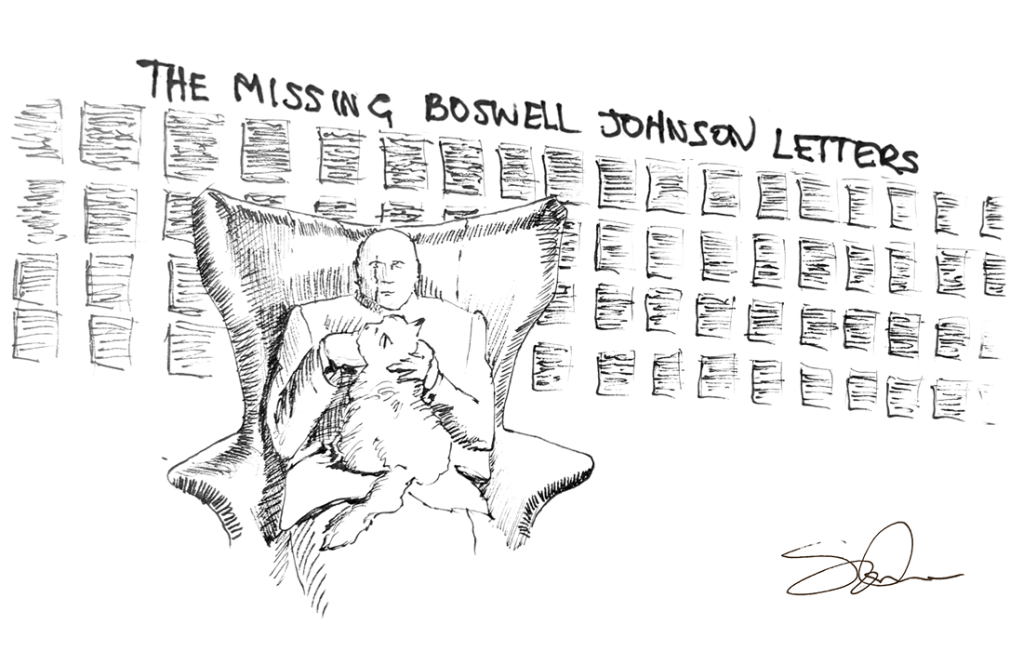 THE MISSING BOSWELL JOHNSON LETTERS